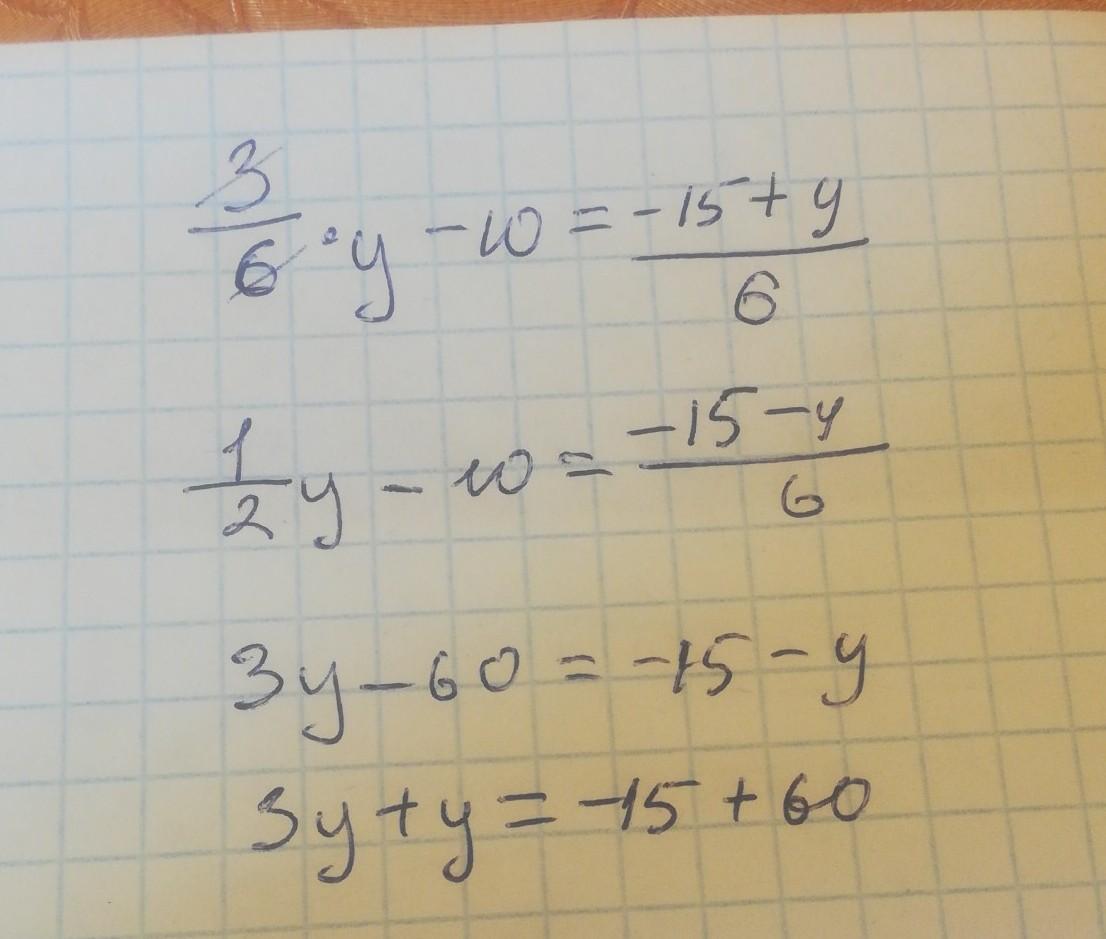 3/6 · y - 10 = (-15 + y)/6
1/2 y - 10 = (-15 - y)/6
3y - 60 = -15 - y
3y + y = -15 + 60